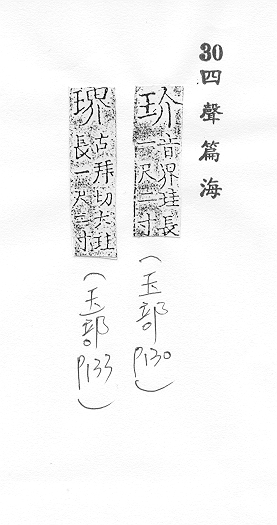 30四聲篇海
玠音界珪長一尺二寸
(玉部P130)
琾古拜切大珪長一尺二寸
(玉部P133)